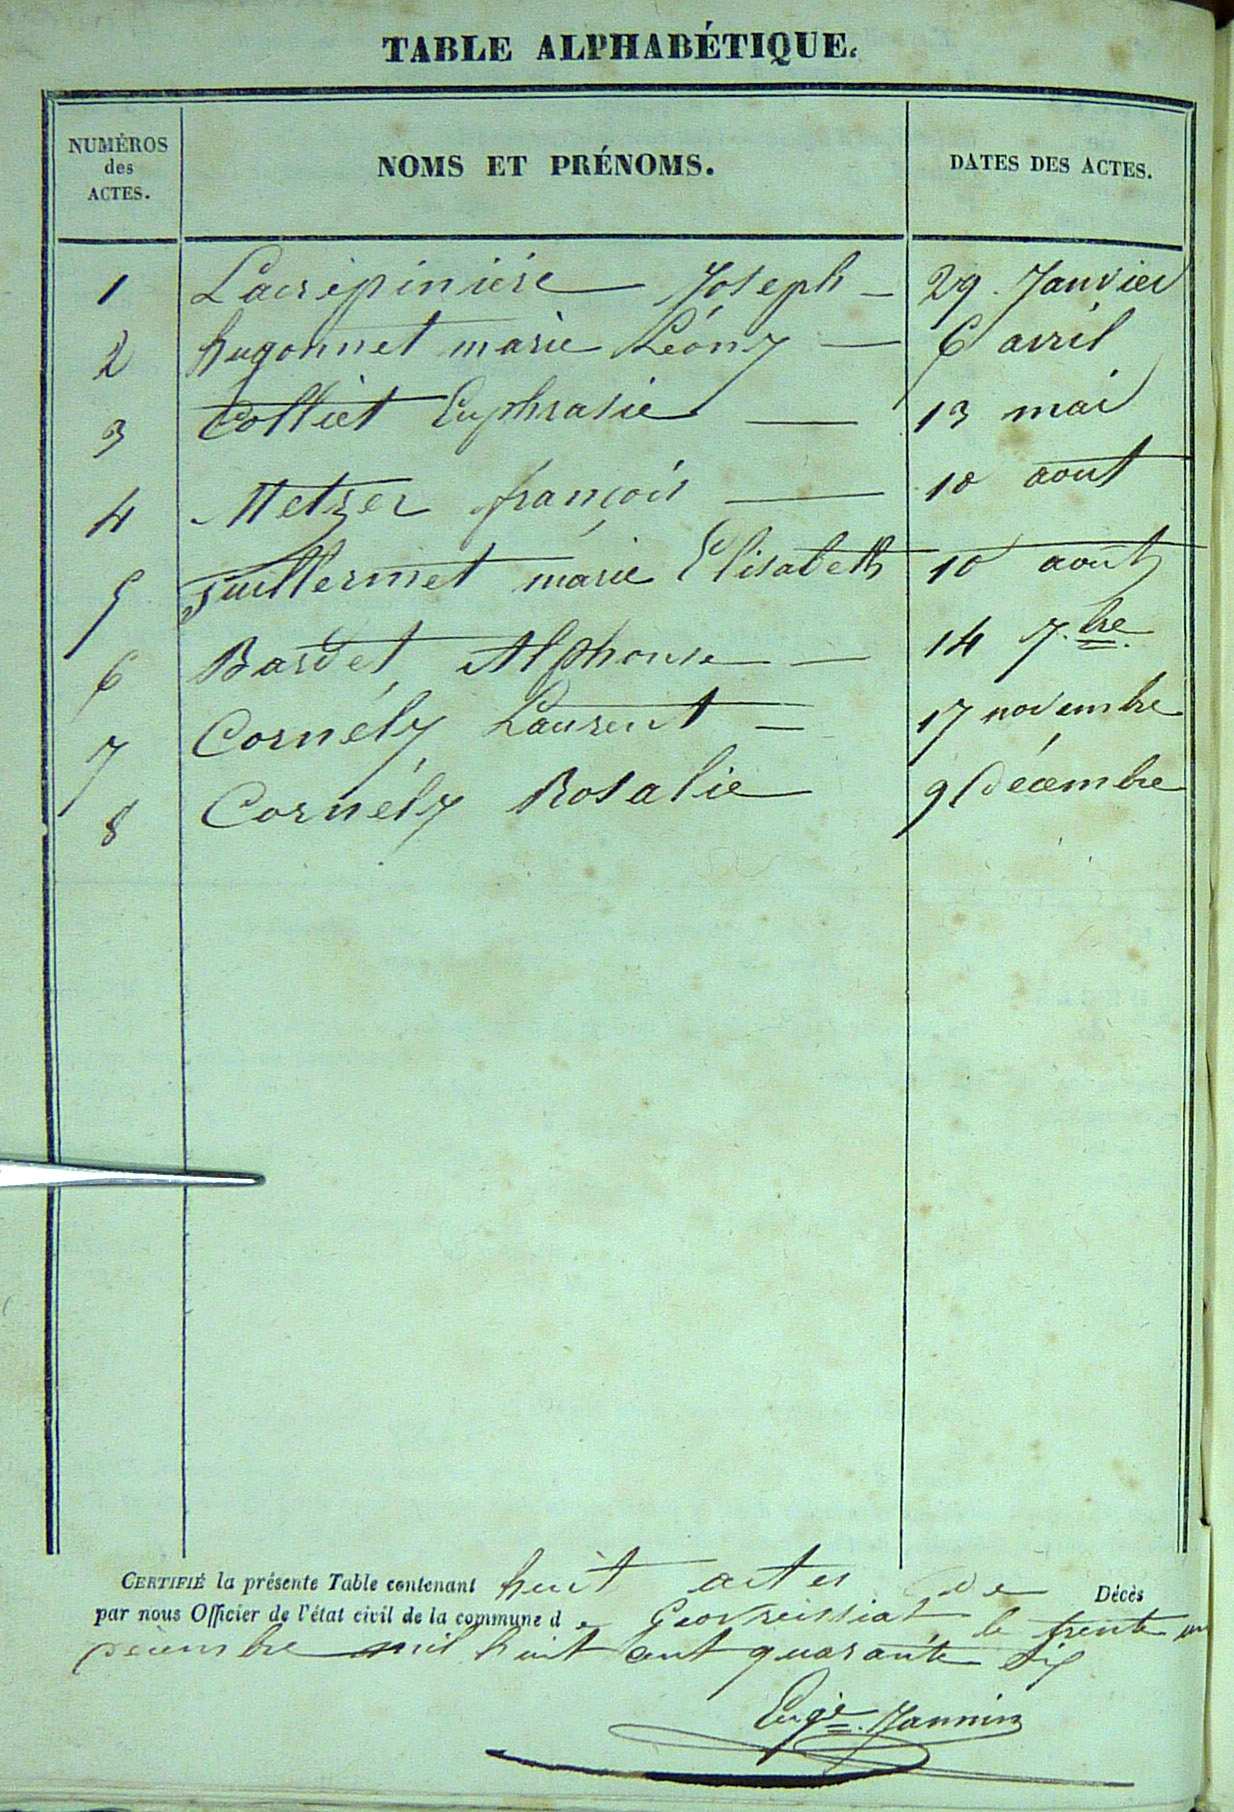 TABLE ALPHABÉTIQUE.
NUMÉROS des ACTES. NOMS ET PRÉNOMS. DATES DES ACTES.
1 Lacrépinière Joseph 29 Janvier
2 hugonnet marie Léony 6 avril
3 Colliet Euphrasie 13 mai
4 Metzer françois 10 aout
5 Juillermet marie Elisabeth 10 août
6 Bardet Alphonse 14 7.bre
7 Cornély Laurent 17 novembre
8 Cornély Rosalie 9 Décembre
CERTIFIÉ la présente Table contenant huit actes de Décès
par nous Officier de l'état civil de la commune de Geovreissiat le trente un
Décembre mil huit cent quarante six
Eug.e Jannin